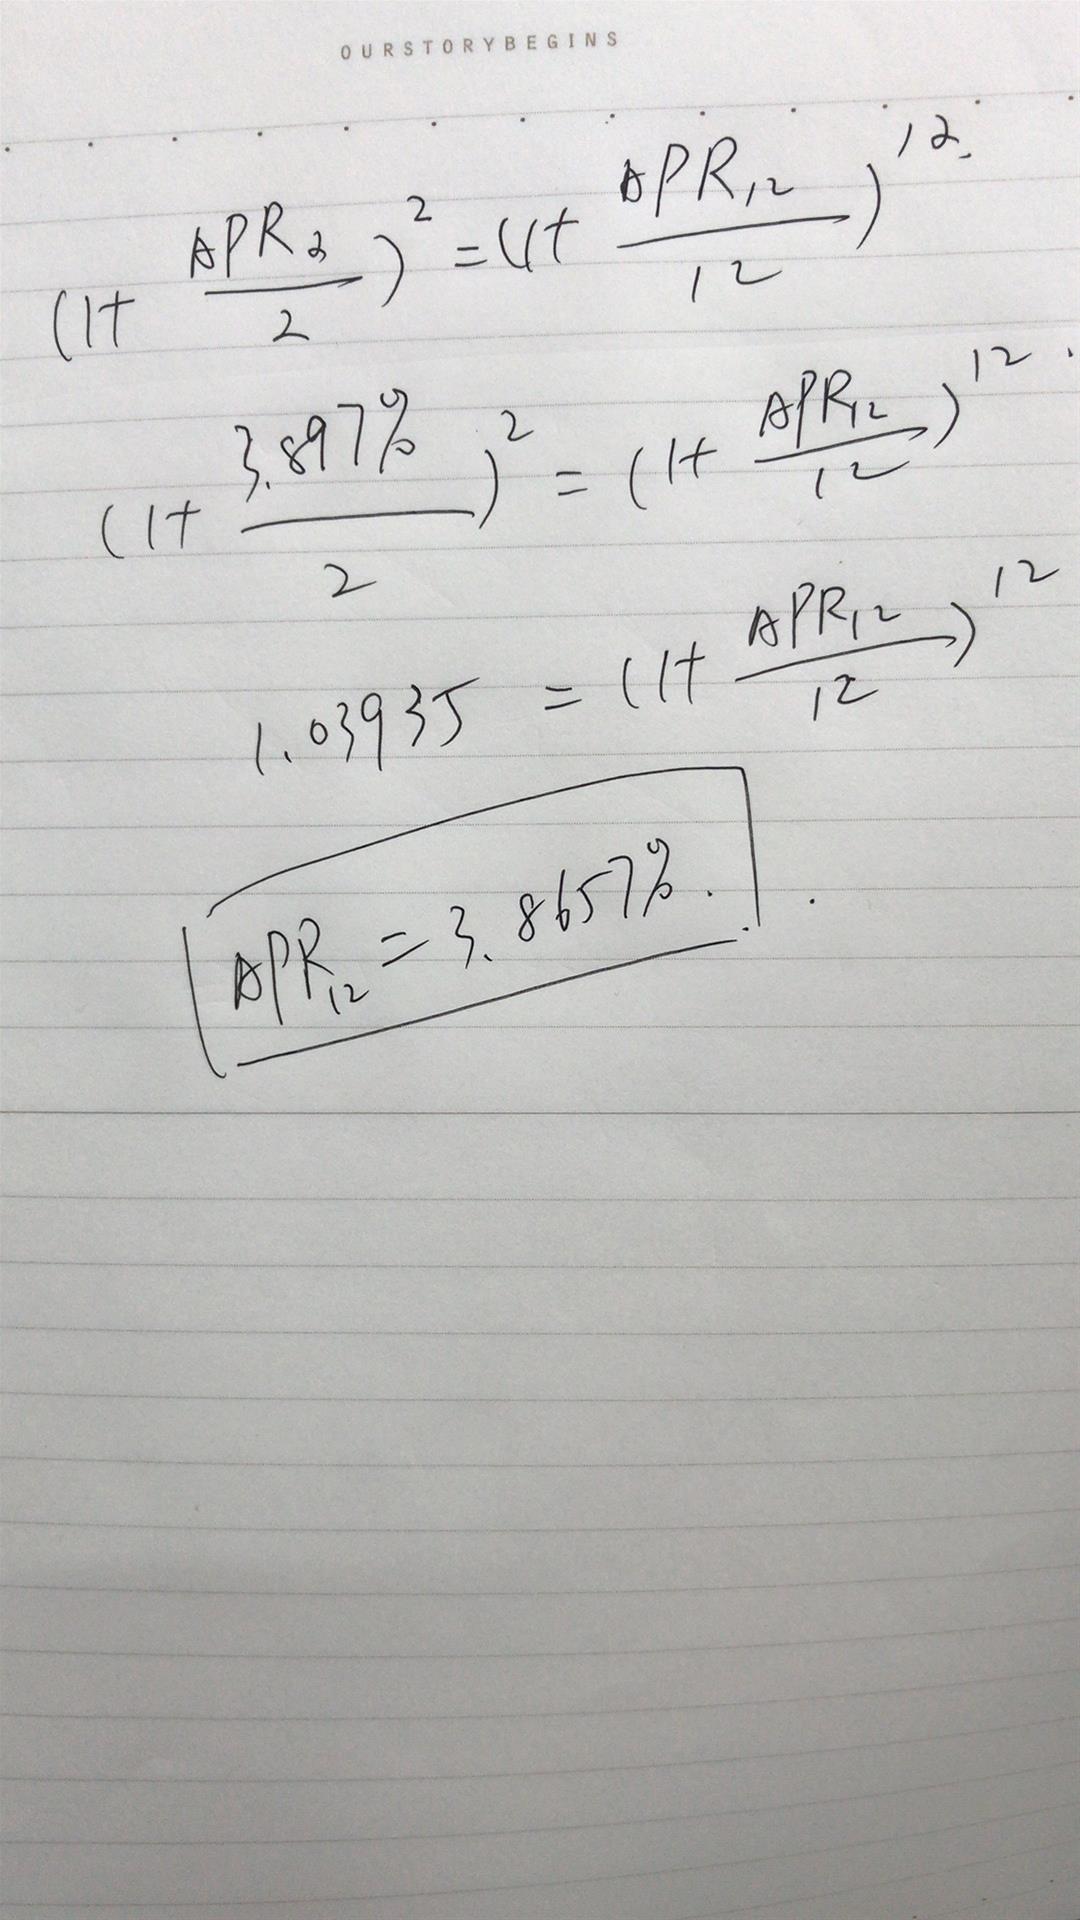 OURSTORYBEGINS
(1+ APR₂/2)² = (1+ APR₁₂/12)¹².
(1+ 3.897%/2)² = (1+ APR₁₂/12)¹².
1.03935 = (1+ APR₁₂/12)¹²
APR₁₂ = 3.8657%.